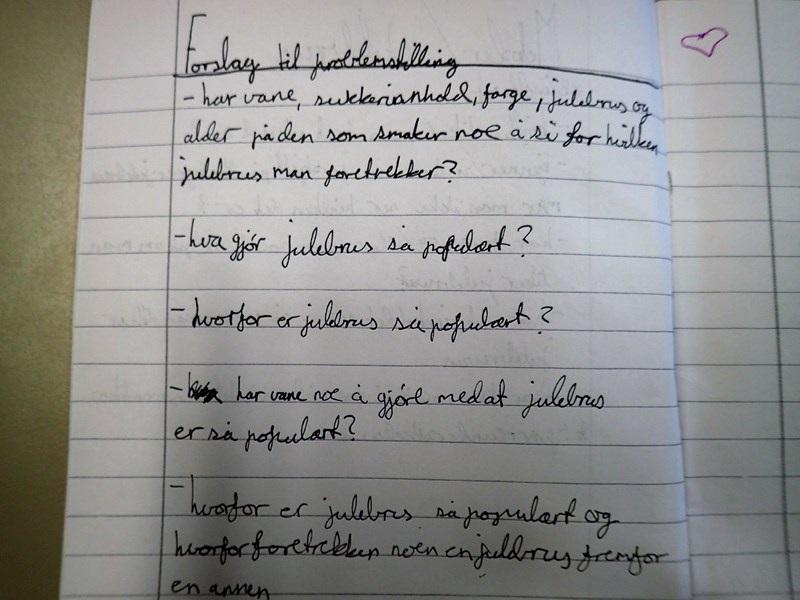 Forslag til problemstilling
- har vane, sukkerinnhold, farge, julebrus og
alder på den som smaker noe å si for hvilken
julebrus man foretrekker?
- hva gjør julebrus så populært?
- hvorfor er julebrus så populært?
- har vane noe å gjøre med at julebrus
er så populært?
- hvorfor er julebrus så populært og
hvorfor foretrekker noen en julebrus fremfor
en annen